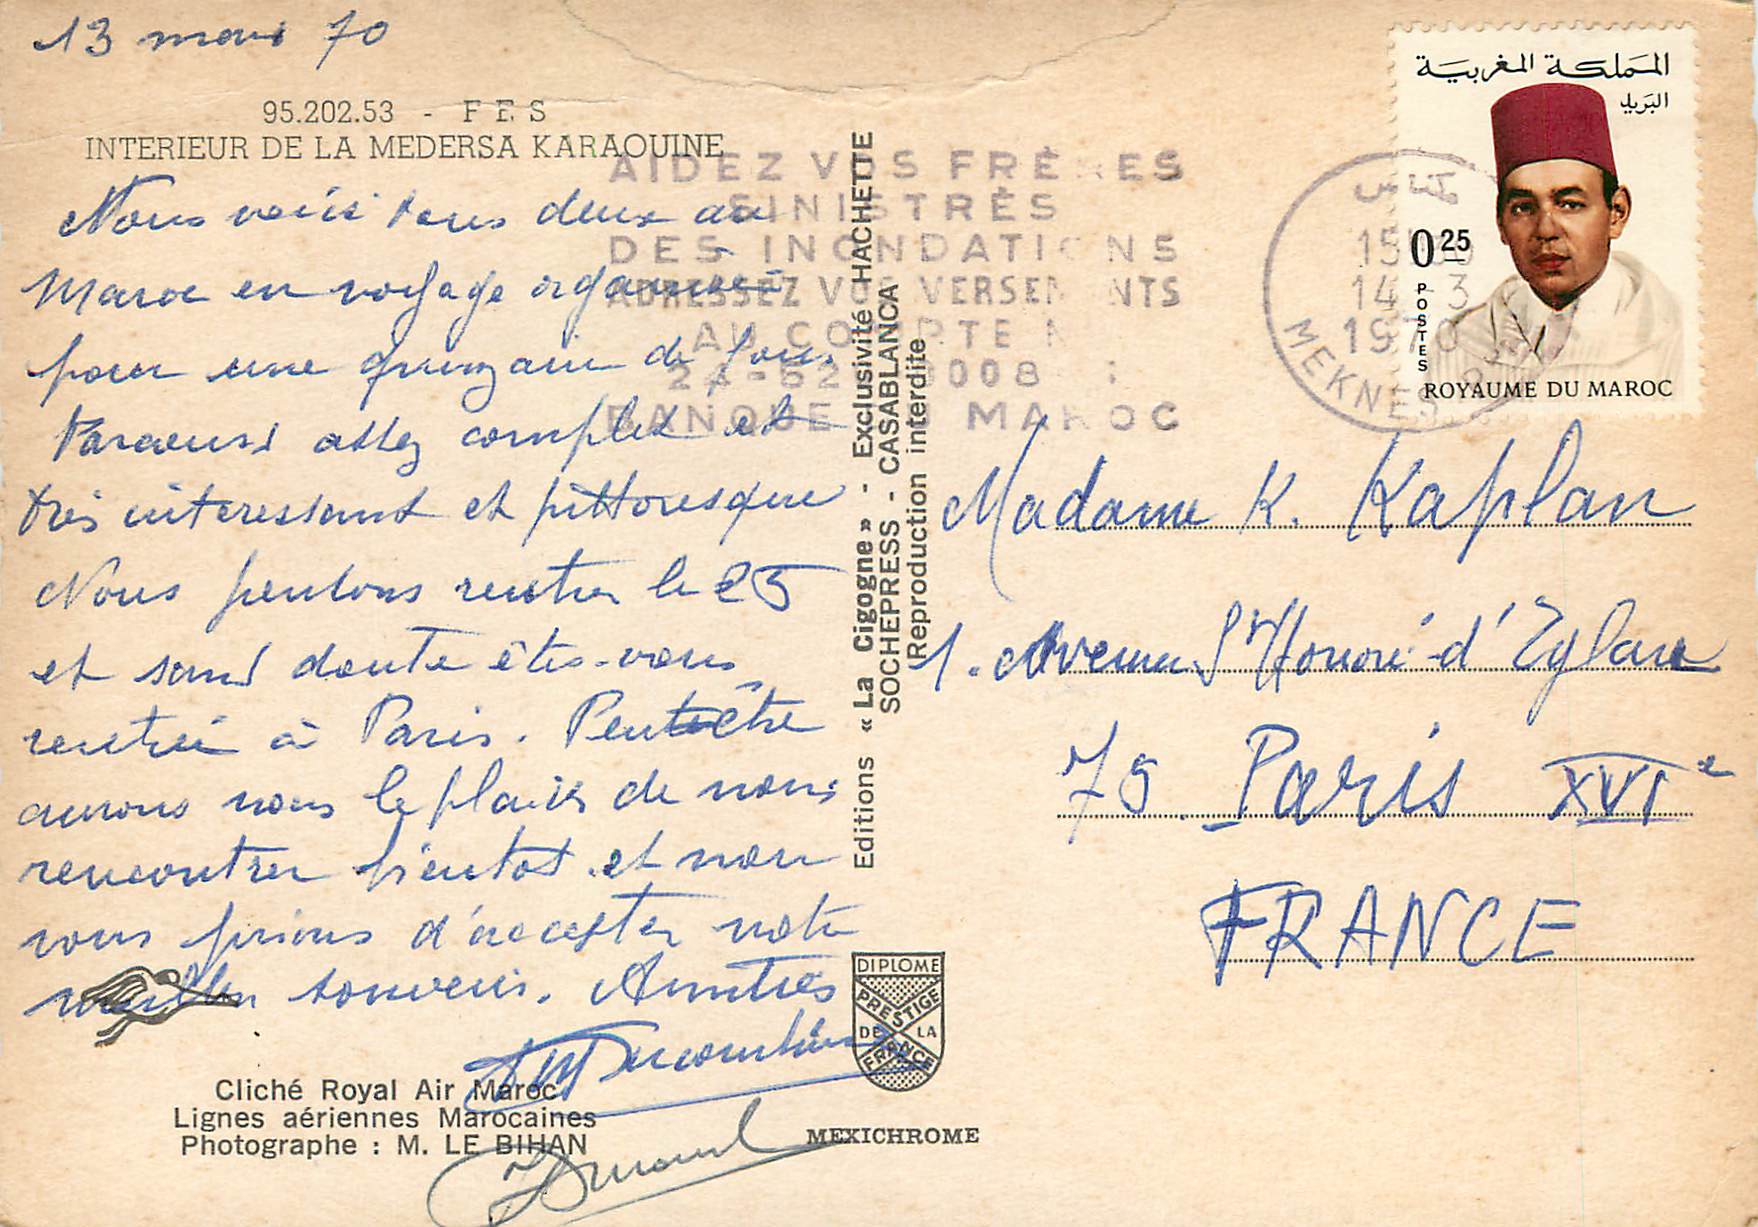 13 mars 70
95.202.53 - FES
INTERIEUR DE LA MEDERSA KARAOUINE
Nous voici tous deux au
Maroc en voyage organisé
pour une quinzaine de jours
Parcours assez complet et
très interessant et pittoresque
Nous pensons rentrer le 25
et sans doute êtes-vous
rentrée à Paris. Peut être
aurons nous le plaisir de nous
rencontrer bientot et nous
vous prions d'accepter notre
meilleur souvenir. Amitiés
Cliché Royal Air Maroc
Lignes aériennes Marocaines
Photographe : M. LE BIHAN
Editions « La Cigogne » - Exclusivité HACHETTE
SOCHEPRESS - CASABLANCA
Reproduction interdite
DIPLOME
PRESTIGE
DE LA
FRANCE
MEXICHROME
AIDEZ VOS FRÈRES
SINISTRÉS
DES INONDATIONS
ADRESSEZ VOS VERSEMENTS
AU COMPTE N
BANQUE DU MAROC
14-3
1970
MEKNES
المملكة المغربية
البريد
0,25
POSTES
ROYAUME DU MAROC
Madame K. Kaplan
1. Avenue St Honoré d'Eylau
75 Paris XVIe
FRANCE